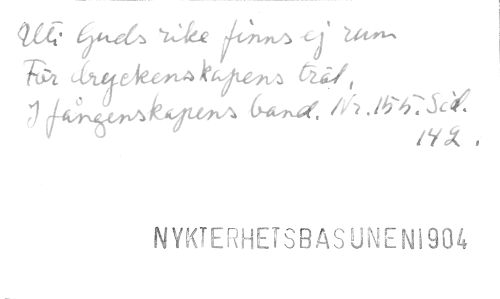 Uti Guds rike finns ej rum
För dryckenskapens träl,
I fångenskapens band. Nr. 155. Sid.
142.
NYKTERHETSBASUNEN1904